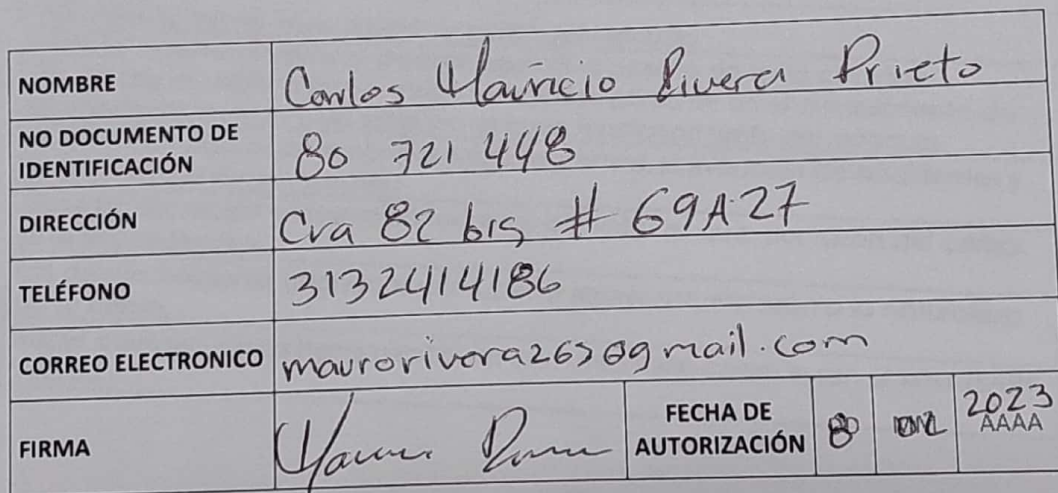 NOMBRE Carlos Mauricio Rivera Prieto
NO DOCUMENTO DE
IDENTIFICACIÓN 80 721 448
DIRECCIÓN Cra 82 bis # 69A27
TELÉFONO 3132414186
CORREO ELECTRONICO
FIRMA
FECHA DE
AUTORIZACIÓN 2023
AAAA